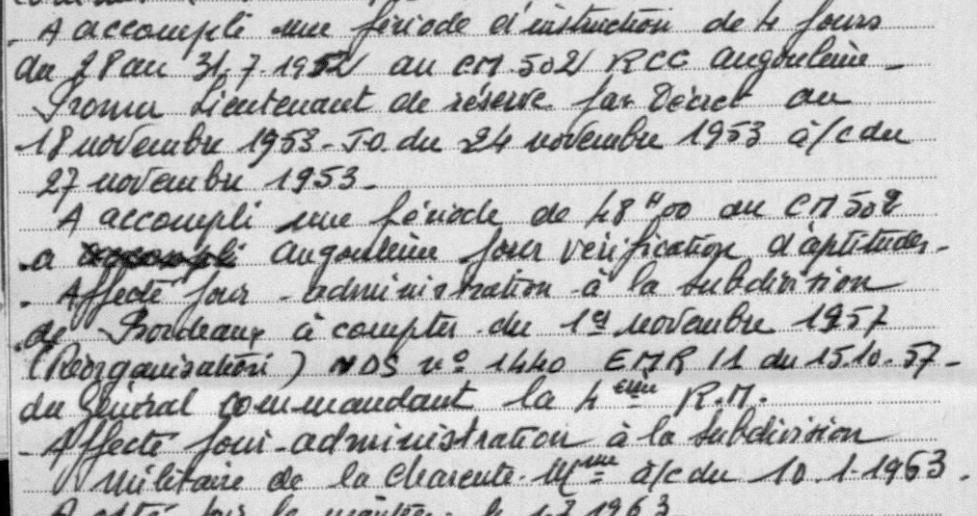 - A accompli une période d'instruction de 4 jours
du 28 au 31.7.1952 au CM 502 RCC Angoulême -
Promu Lieutenant de réserve par Décret du
18 novembre 1953 - JO. du 24 novembre 1953 à/c du
27 novembre 1953 -
A accompli une période de 48 H 00 au CM 502
a Angoulême pour vérification d'aptitudes -
- Affecté pour - administration à la subdivision
de Bordeaux à compter du 1er novembre 1957
(Réorganisation) NDS n° 1440 EMR 11 du 15.10.57 -
du Général commandant la 4ème R.M.
- Affecté pour - administration à la subdivision
Militaire de la Charente-Mme à/c du 10.1.1963.
1963